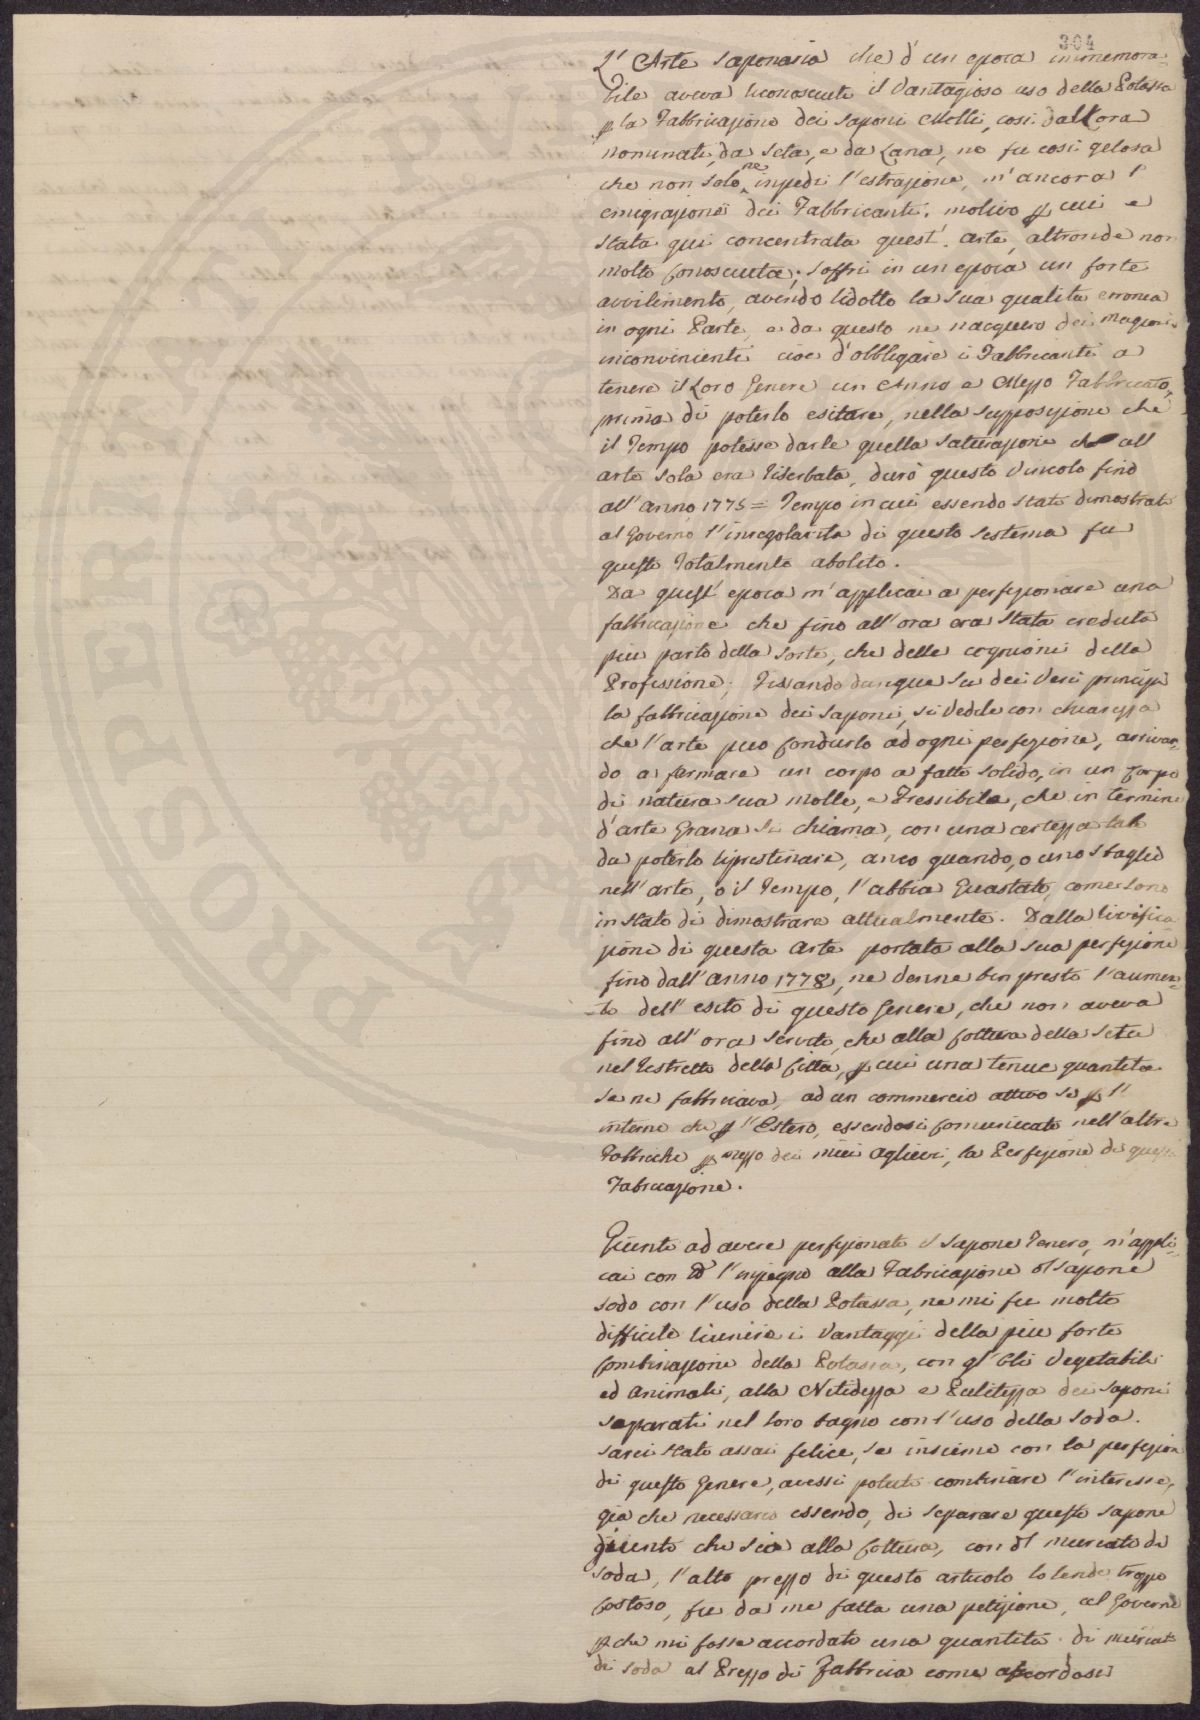 304
L' Arte saponaria che d'un epoca immemora=
bile aveva riconosciuti il Vantagioso uso della Potassa
p la Fabbricazione dei saponi Molli, cosi dall'ora
nominati, da seta, e da Lana, ne fu cosi gelosa
che non solo ne inpedi l'estrazione, m'ancora l'
emigrazione dei Fabbricanti. motivo p cui e
stata qui concentrata quest'. arte, altronde non
molto conosciuta; soffri in un epoca un forte
avvilimento, avendo ridotto la sua qualita erronea
in ogni Parte, e da questo ne nacquero dei magiori
inconvinienti cioe d'obbligare i Fabbricanti a
tenere il Loro Genere un Anno e Mezzo Fabbricato,
prima di poterlo esitare, nella supposizione che
il Tempo potesse darle quella saturazione che all
arte sola era riserbata, durò questo Vincolo fino
all'anno 1775 = Tempo in cui essendo stati dimostrati
al Governo l'inregolarita di questo sestema fu
questo totalmente abolito.
Da quest' epoca m'applicai a perfezionare una
fabbricazione che fino all'ora era stata creduta
piu parto della sorte, che delle cognioni della
Professione; Fissando dunque su dei Veri principi
la fabbricazione dei saponi, si vedde con chiarezza
che l'arte puo condurlo ad ogni perfezione, arrivan=
do a formare un corpo a fatto solido, in un corpo
di natura sua molle, e Pressibile, che in termine
d'arte Grana si chiama, con una certezza tale
da poterlo ripristinare, anco quando, o uno sbaglio
nell'arte, o il Tempo, l'abbia Guastato, come sono
in stato di dimostrare attualmente. Dalla
zione di questa Arte portata alla sua perfezione
fino dall'anno 1778, ne venne ben presto l'aumen=
=to dell'esito di questo Genere, che non aveva
fino all'ora servito, che alla Cottura della seta
nel Restretto della Città, p cui una tenue quantita
se ne fabbricava, ad un commercio attivo si p l'
interno che p l'Estero, essendosi comunicato nell'altre
Fabbriche p mezzo dei miei aglievi, la Perfezione di questa
Fabricazione.
Giunto ad avere perfezionato il sapone Tenero, m'appli=
cai con l'inpegno alla Fabricazione sapone
sodo con l'uso della Potassa, ne mi fu molto
difficile riunire i Vantaggi della piu forte
Combinazione della Potassa, con gl'Oli Vegetabili
ed Animali, alla Nitidezza e Pulitezza dei saponi
separati nel loro bagno con l'uso della soda.
sarei stato assai felice, se insieme con la perfezion
di questo Genere, avessi potuto combinare l'interesse,
gia che necessario essendo, di separare questo sapone
giunto che sia alla Cottura, con muriato di
soda, l'alto prezzo di questo articolo lo rende troppo
Costoso, fu da me fatta una petizione, al Governo
p che mi fosse accordato una quantità di muriato
di soda al Prezzo di Fabbrica come accordasi